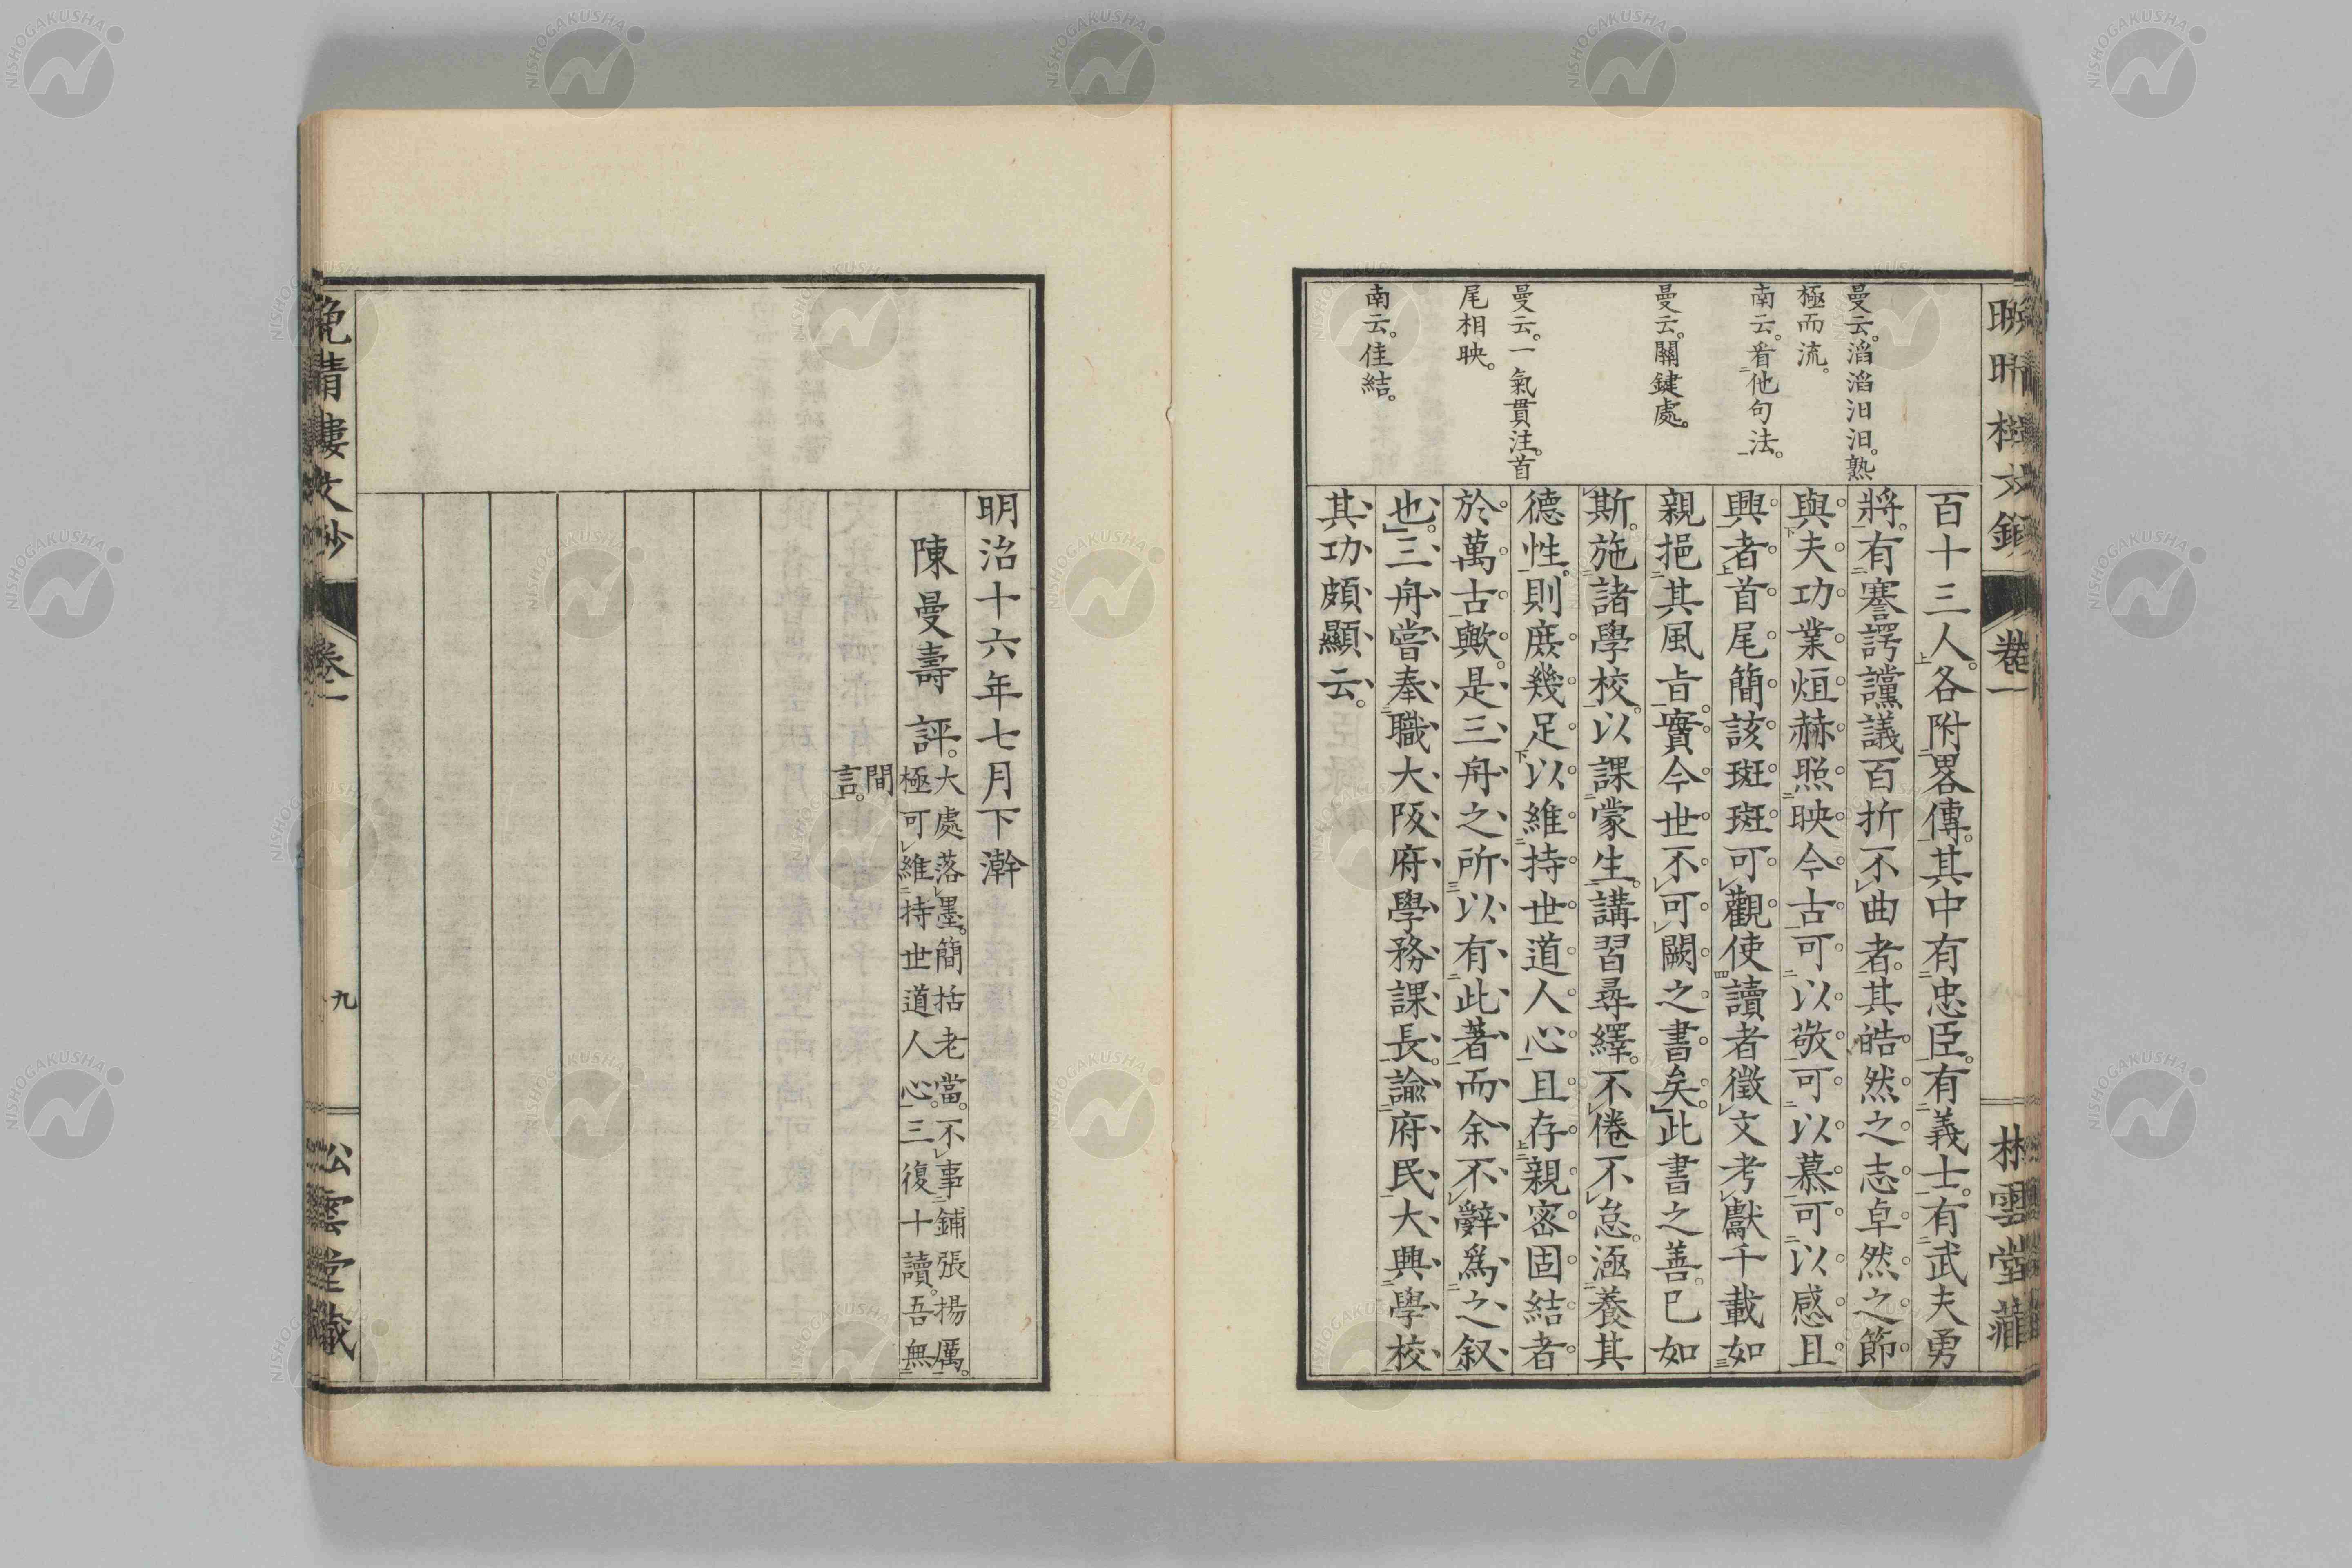 曼云。滔滔汨汨。熟
極而流。
南云。看他句法。
曼云。關鍵處。
曼云。一氣貫注。首
尾相映。
南云。佳結。
百十三人。各附畧傳。其中有忠臣。有義士。有武夫勇
將。有謇諤讜議百折不曲者。其皓然之志卓然之節。
與夫功業烜赫照映今古。可以敬可以慕可以感且
興者。首尾簡該斑斑可觀使讀者徵文考獻千載如
親挹其風旨。實今世不可闕之書矣。此書之善。已如
斯。施諸學校。以課蒙生。講習尋繹。不倦不怠。涵養其
德性。則庶幾足以維持世道人心且存親密固結者
於萬古歟。是三舟之所以有此著而余不辭爲之叙
也。三舟嘗奉職大阪府學務課長。諭府民大興學校
其功頗顯云。
卷一
明治十六年七月下澣
陳曼壽評。大處落墨。簡括老當。不事鋪張揚厲。
極可維持世道人心。三復十讀。吾無
間
言。
晩晴樓文鈔
卷一
九
松雲堂藏
NISHOGAKUSHA